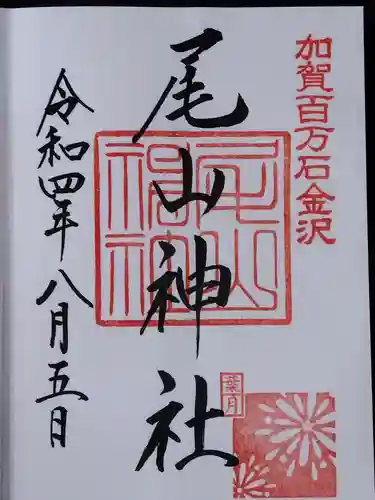 加賀百万石金沢
尾山神社
葉月
令和四年八月五日